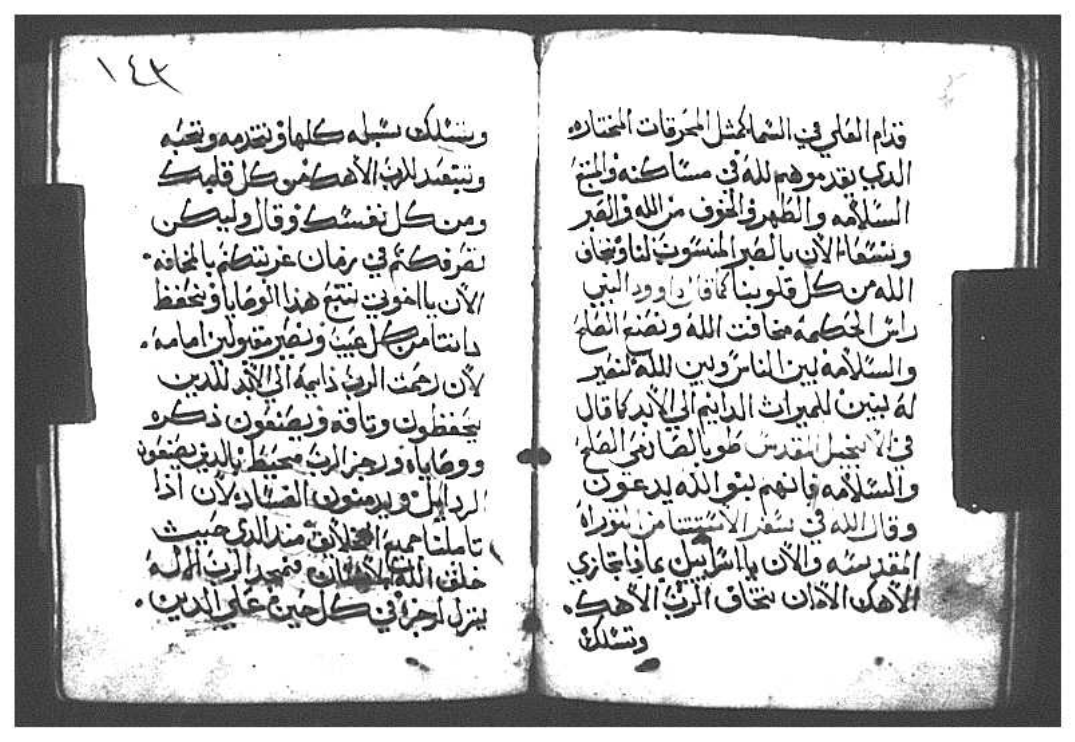 قدام العلي في السما كمثل المحرقات المختاره
الذي يقدموهم لله في مساكنه والمنتج
السلامه والطهر والخوف من الله والصبر
ونسعا الان بالصبر المنسوب لنا ونخاف
الله من كل قلوبنا كما قال داوود النبي
راس الحكمه مخافت الله ونصنع الصلح
والسلامه بين الناس وبين الله لنصير
له بنين للميرات الدايم الي الابد كما قال
في الانجيل المقدس طوبا لصانعي الصلح
والسلامه فانهم بنو الله يدعون
وقال الله في سفر الاستتنا من التوراه
المقدسه والان يا اسراييل بماذا تجازي
الاهك الا ان تخاف الرب الاهك.
وتسلك
١٤٣
وتسلك سبله كلها وتخدمه وتحبه
وتتعبد للرب الاهك من كل قلبك
ومن كل نفسك وقال وليكن
تصرفكم في زمان غربتكم بالمخافه.
الان يا اخوتي نتبع هذا الوصايا ونحفظ
داتنا من كل عيب ونصير مقبولين امامه.
لان رحمت الرب دايمه الي الابد للدين
يحفظون وتاقه ويصنعون ذكره
ووصاياه ورجز الرب محيط بالدين يصنعون
الردايل ويدمنون الفساد لان اذا
تاملنا جميع الخلايق مند الذي حيث
خلق الله الانسان فنجد الرب الاله
ينزل الرجز في كل حين علي الدين.